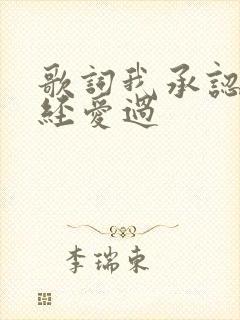 歌詞我承認
経愛過
李瑞東